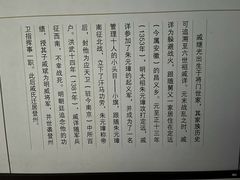 戚继光出生于将门世家，其家族历史
可追溯至六世祖戚详。元末战乱之时，戚
详为躲避战火，跟随舅父一家居住在定远
（今属安徽）的昌义乡。元至正十三年
（1353年），明太祖朱元璋攻打定远，戚
详参加了朱元璋的起义军，并成为了一名
管理十人的小头目——小旗，跟随朱元璋
南征北战，立下了汗马功劳。朱元璋称帝
后，封他为应天卫（驻今南京）中所百
户。洪武十四年（1381年），戚详随军兵
征西南，不幸战死。明朝廷追念他的功
绩，授其子戚斌为明威将军，并世袭登州
卫指挥事一职，此后戚氏迁居登州。